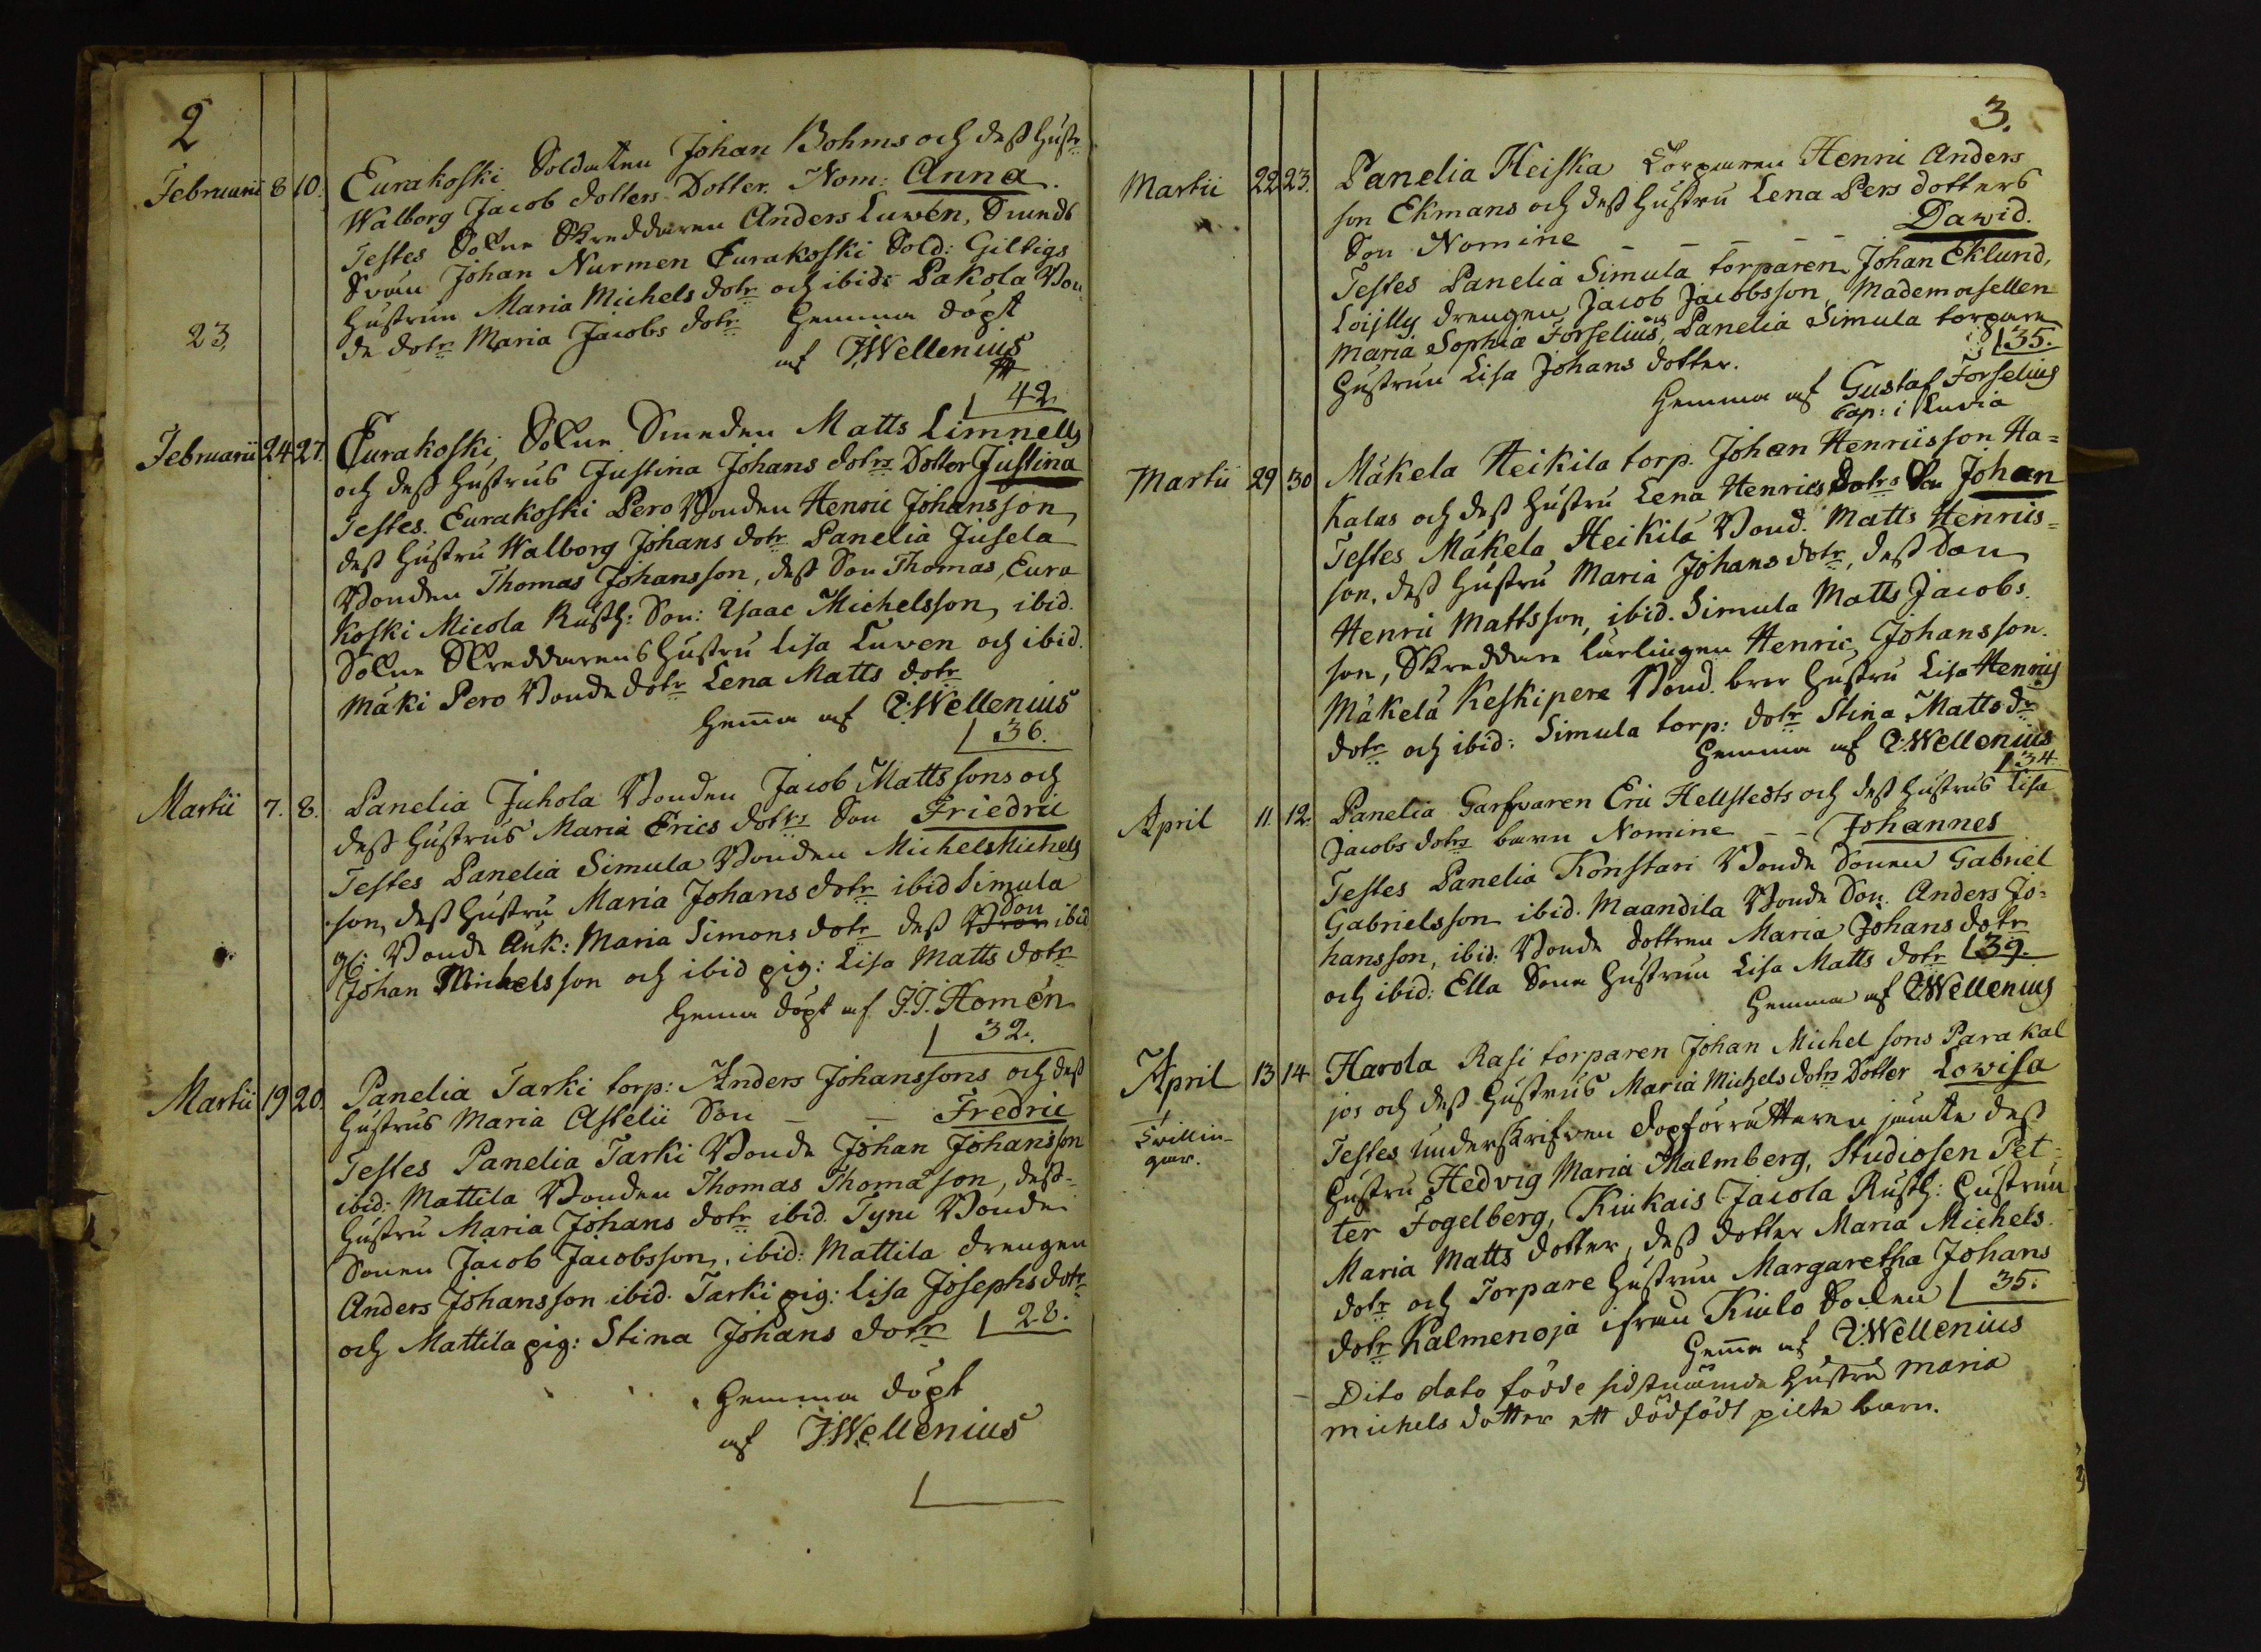 2
Februarii 8 10. Eurakoski Soldaten Johan Bohms och dess hustr
Walborg Jacob dotters Dotter. Nom: Anna.
Testes Sokne Skreddaren Anders Luwén, Smeds
Johan Nurmen Eurakoski Sold: Giltigs
Hustrun Maria Michels dotr och ibid: Pakola Bon-
23. de dotr Maria Jacobs dotr Hemma döpt
af JWellenius
42
Februarii 24 27. Eurakoski, Sokne Smeden Matts Limnells
och dess hustrus Justina Johans dotrs Dotter Justina
Testes. Eurakoski Pero Bonden Henric Johansson,
dess hustru Walborg Johans dotr Panelia Jusela
Bonden Thomas Johansson, dess Son Thomas, Eura
koski Micola Rusth: Son: Isaac Michelsson, ibid.
Sokne Skreddarens hustru Lisa Luwen och ibid.
Mäki Pero Bonde dotr Lena Matts dotr
Hema af JWellenius
36.
Martii 7. 8. Panelia Juhola Bonden Jacob Mattssons och
dess hustrus Maria Erics dotrs Son Friedric
Testes Panelia Simula Bonden Michels Michels
son, dess hustru Maria Johans dotr ibid Simula
gl: Bonde Ank: Maria Simons dotr dess Bror Son ibid
Johan Michelsson och ibid pig: Lisa Matts dotr
Hema döpt af J.J. Homén
32.
Martii 19 20. Panelia Tarki torp: Anders Johanssons och dess
hustrus Maria Astelii Son — — Fredric
Testes Panelia Tarki Bonde Johan Johansson
ibid: Mattila Bonden Thomas Thomasson, dess
hustru Maria Johans dotr ibid. Tyni Bonde
Sonen Jacob Jacobsson, ibid: Mattila drengen
Anders Johansson ibid. Tarki pig: Lisa Josephs dotr
och Mattila pig: Stina Johans dotr 28.
Hemma döpt
af JWellenius
3.
Martii 22 23. Panelia Heiska Torparen Henric Anders
son Ekmans och dess hustru Lena Pers dotters
Son Nomine — — — — — Dawid.
Testes Panelia Simula torparen Johan Eklund,
drengen Jacob Jacobsson, Mademoisellen
Maria Sophia Forselius, och Panelia Simula torpare
Hustrun Lisa Johans dotter. 35.
Hemma af Gustaf Forselius
Cap: i Luvia
Martii 29 30 Mäkela Heikila torp. Johan Henricsson Ha=
kalas och dess hustru Lena Henrics dotrs Son Johan
Testes Mäkela Heikilä Bond. Matts Henrics=
son, dess hustru Maria Johans dotr, dess Son
Henric Mattsson, ibid. Simula Matts Jacobs
son, Skreddare lärlingen Henric Johansson.
Mäkelä Keskipere Bond. bror hustru Lisa Henrics
dotr och ibid: Simula torp: dotr Stina Matts dr
Hemma af JWellenius
34.
April 11. 12. Panelia Garfvaren Eric Hellstedts och dess hustrus Lisa
Jacobs dotrs barn Nomine — — Johannes
Testes Panelia Konstari Bonde Sonen Gabriel
Gabrielsson ibid. Maandila Bonde Son. Anders Jo=
hansson, ibid: Bonde dottren Maria Johans dotr
och ibid: Ella Sone hustrun Lisa Matts dotr 39.
Hemma af JWellenius
April 13 14 Harola Rasi torparen Johan Michelsons Parakal
jos och dess hustrus Maria Michels dotrs Dotter Lowisa
Testes underskrifven dopförrättaren jemte dess
Twillin-
gar.
hustru Hedvig Maria Malmberg, Studiosen Pet=
ter Fogelberg, Kiukais Jacola Rusth: Hustrun
Maria Matts dotter, dess dotter Maria Michels
dotr och Torpare Hustrun Margaretha Johans
dotr Kalmenoja ifrån Kiulo Socken 35.
Hema af JWellenius
Dito dato födde sidstnämde hustru Maria
Michels dotter ett dödfödt pilte barn.